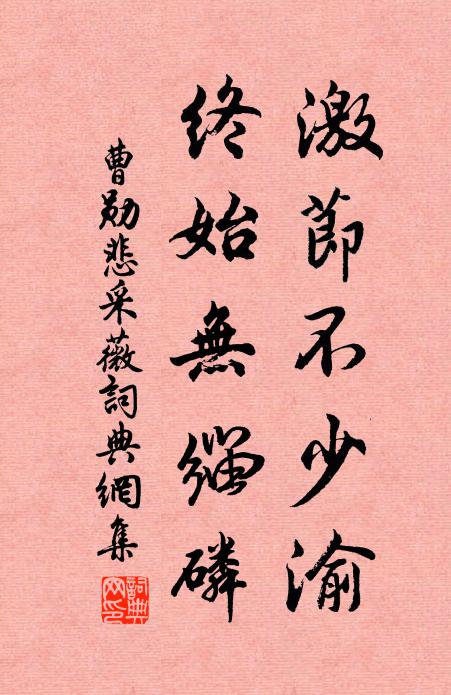 激節不少渝
終始無緇磷
曹勛悲采薇詞典網集
詞典網印